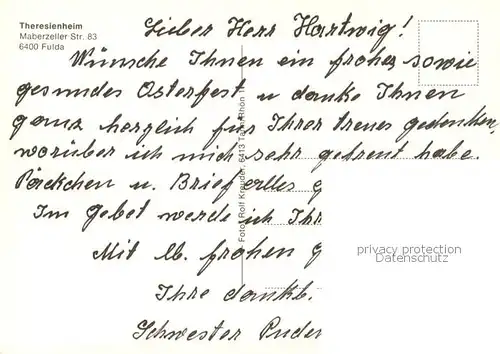 Theresienheim
Maberzeller Str. 83
6400 Fulda
Lieber Herr Hartwig!
Wünsche Ihnen ein frohes sowie
gesundes Osterfest u danke Ihnen
ganz herzlich für Ihrer treues gedenken
worüber ich mich sehr gefreut habe.
Päckchen u. Brief alles g
Im gebet werde ich Ihr
Mit lb. frohen g
Ihre dankb.
Schwester
Foto: Rolf Kreuder, 6413 Tann/Rhön
privacy protection
Datenschutz